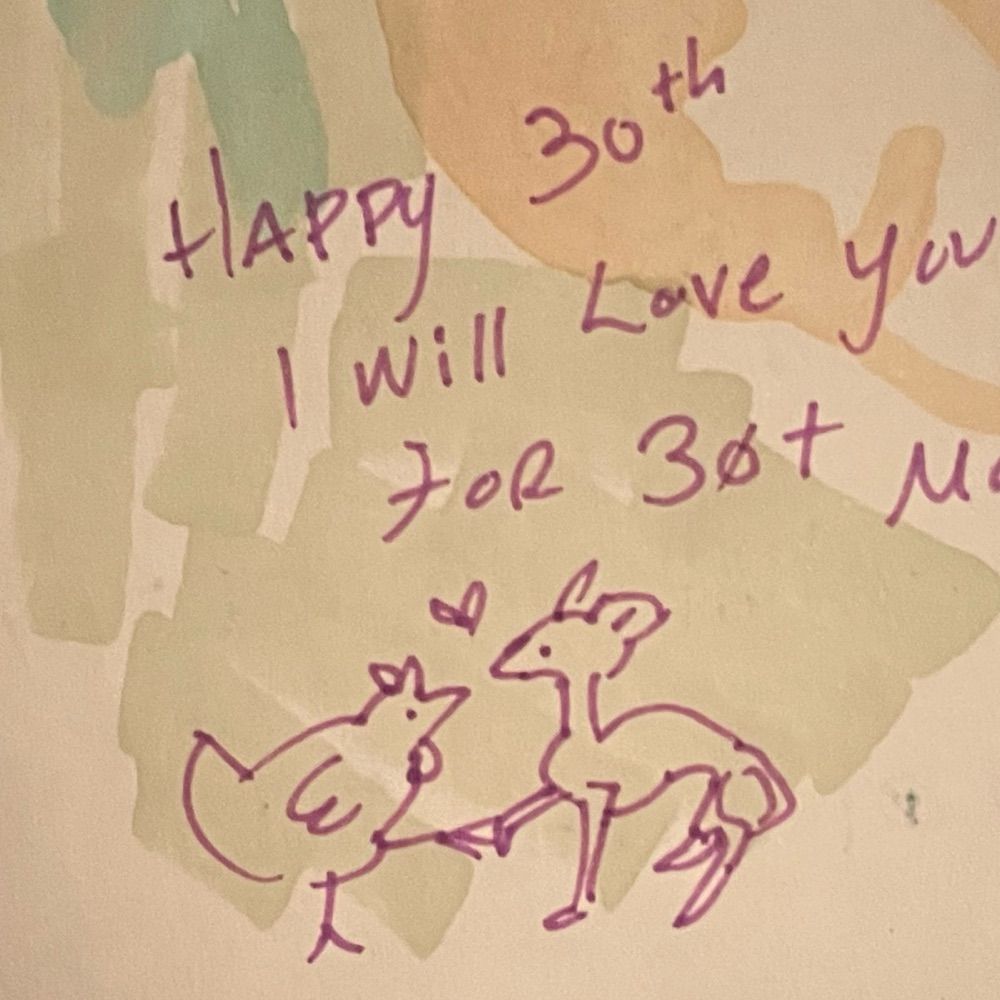 HAPPY 30th
I Will Love You
FOR 30+